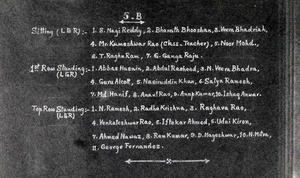 5-B
Sitting (L&R):- 1. S. Nagi Reddy, 2. Bharath Bhooshan, 3. Veera Bhadriah,
4. Mr. Kameshwar Rao (Class-Teacher), 5. Noor Mohd.,
6. T. Raghu Ram, 7. G. Ganga Raju.
1st Row Standing:- 1. Abbas Husain, 2. Abdul Rasheed, 3. N. Veera Bhadra
(L&R) 4. Guru Alcott, 5. Nasiruddin Khan, 6. Satya Ramesh,
7. Md. Hanif, 8. Anant Rao, 9. Anup Kumar, 10. Ishaq Anwar.
Top Row Standing:- 1. N. Ramesh, 2. Radha Krishna, 3. Raghava Rao,
(L&R) 4. Venkateshwar Rao, 5. Iftekar Ahmed, 6. Udai Kiran,
7. Ahmed Nawaz, 8. Ram Kumar, 9. D. Nageshwar, 10. N. Mitra,
11. George Fernandez.